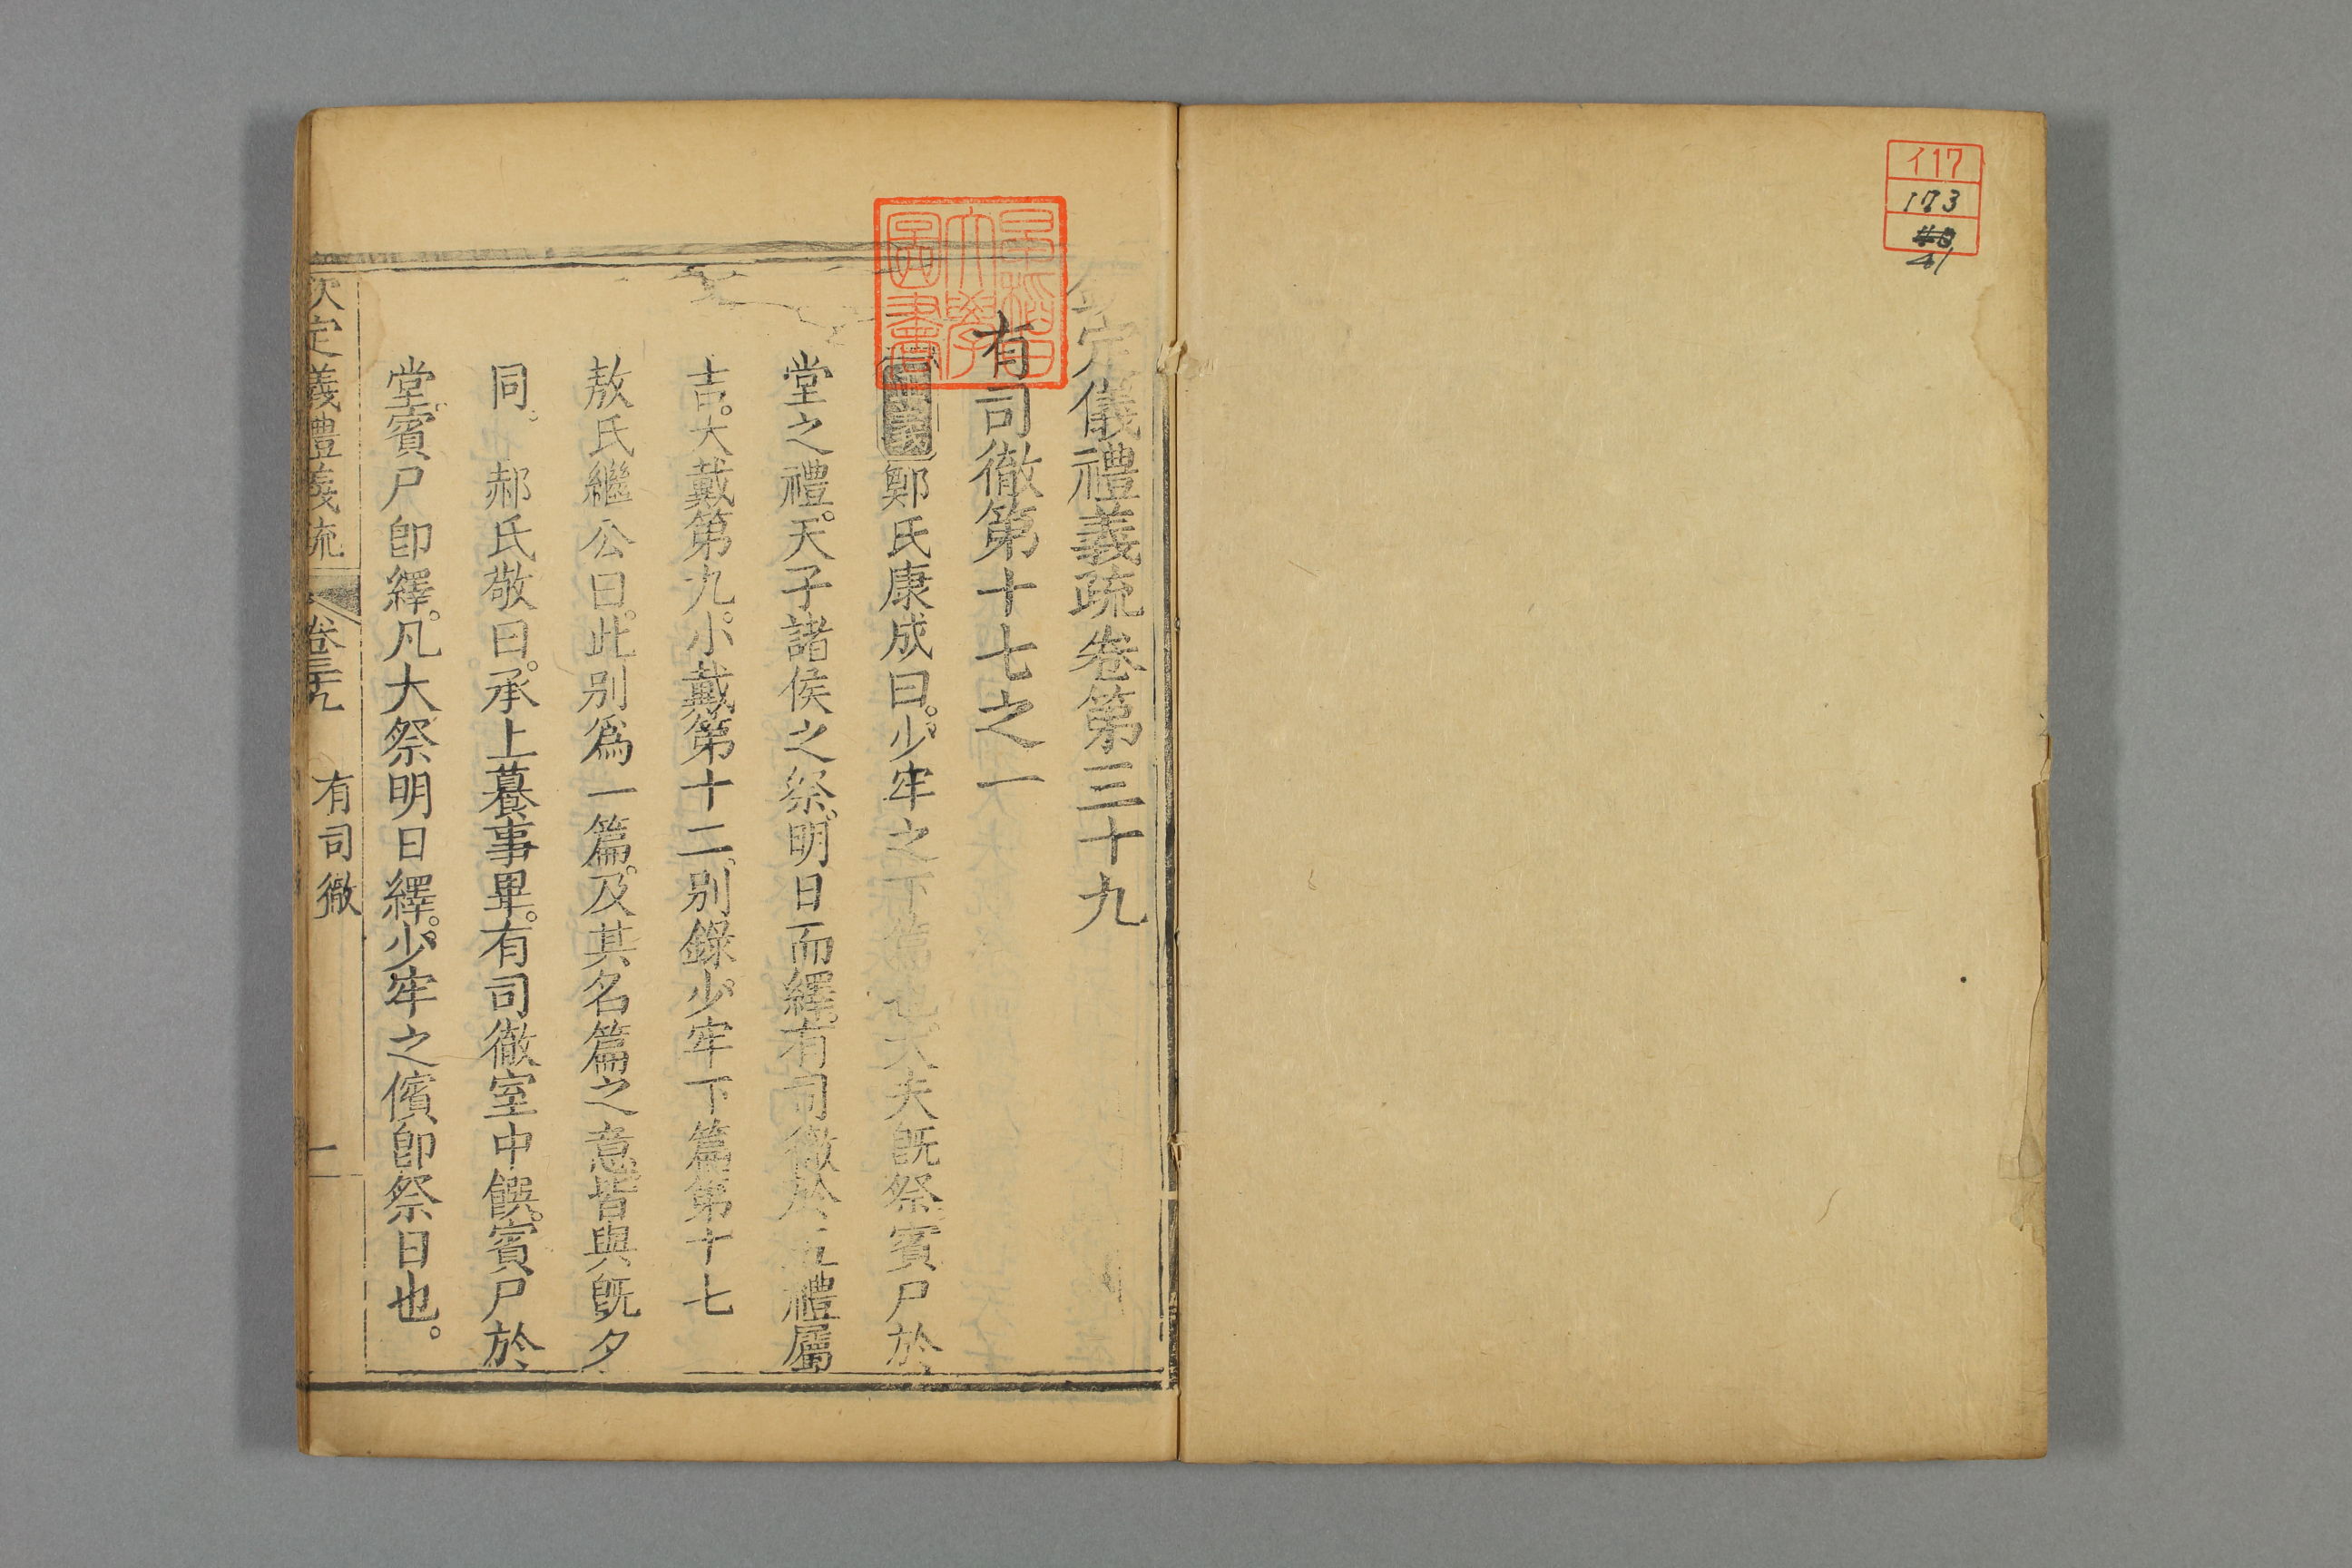 イ17
173
41
欽定儀禮義疏卷第三十九
有司徹第十七之一
正義鄭氏康成曰。少牢之下篇也。大夫旣祭。賓尸於
堂之禮。天子諸侯之祭。明日而繹。有司徹於五禮屬
吉。大戴第九。小戴第十二。别錄少牢下篇第十七
敖氏繼公曰。此別爲一篇。及其名篇之意。皆與旣夕
同。 郝氏敬曰。承上養事畢。有司徹室中饌。賓尸於
堂。賓尸卽繹。凡大祭明日繹。少牢之儐卽祭日也。
欽定義禮義疏 卷三十九 有司徹 一
早稻田大學圖書